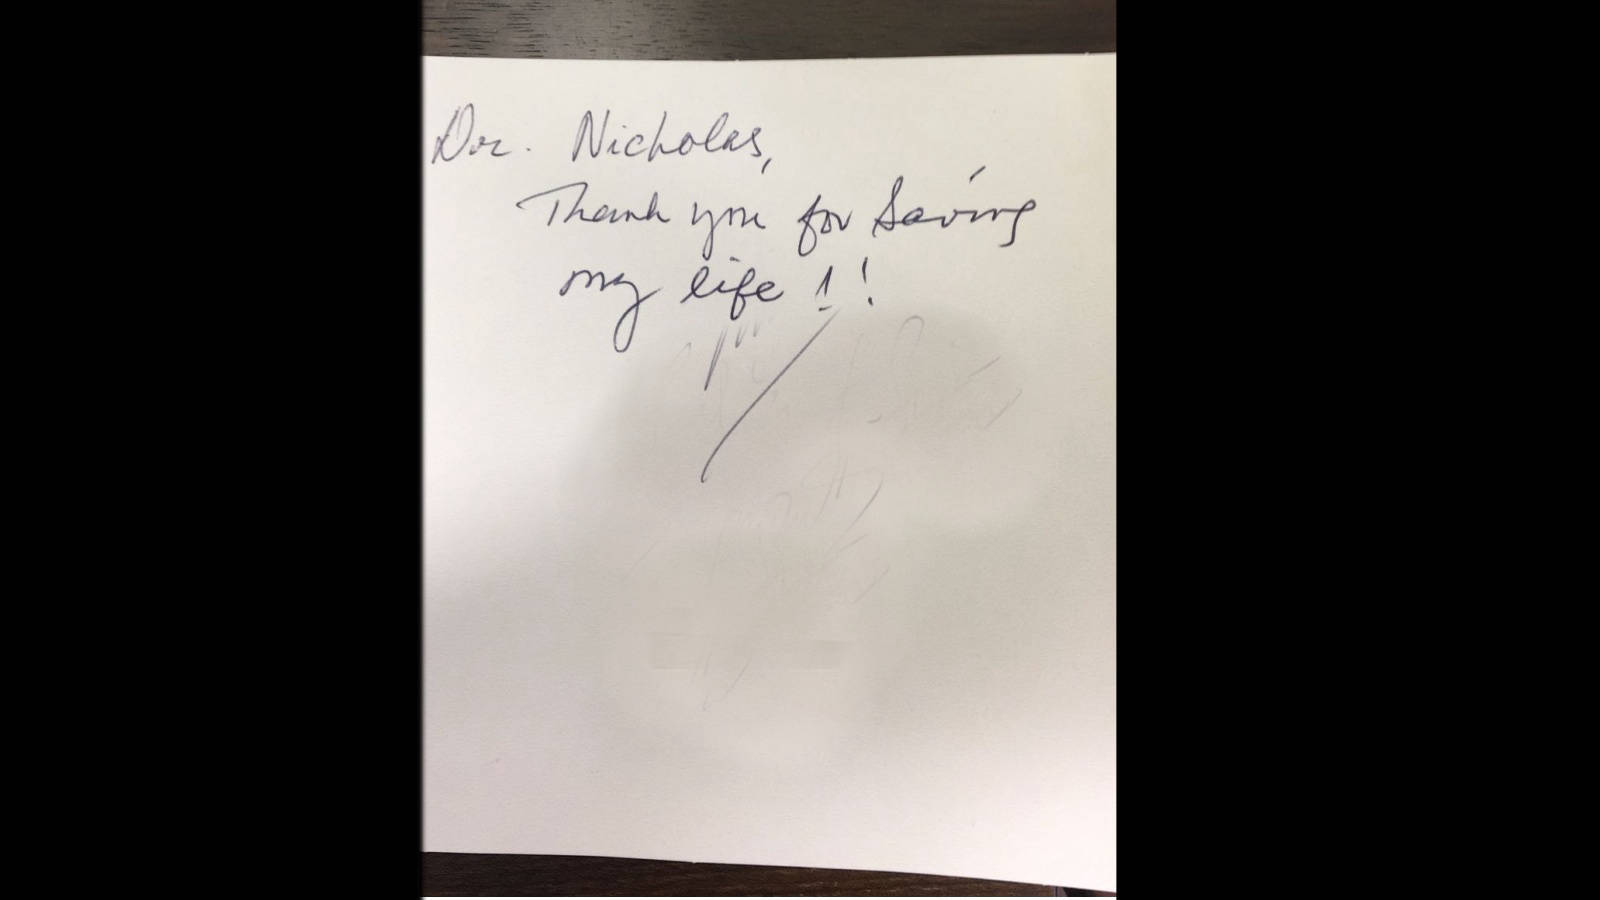 Doc. Nicholas,
Thank you for Saving
my life!!